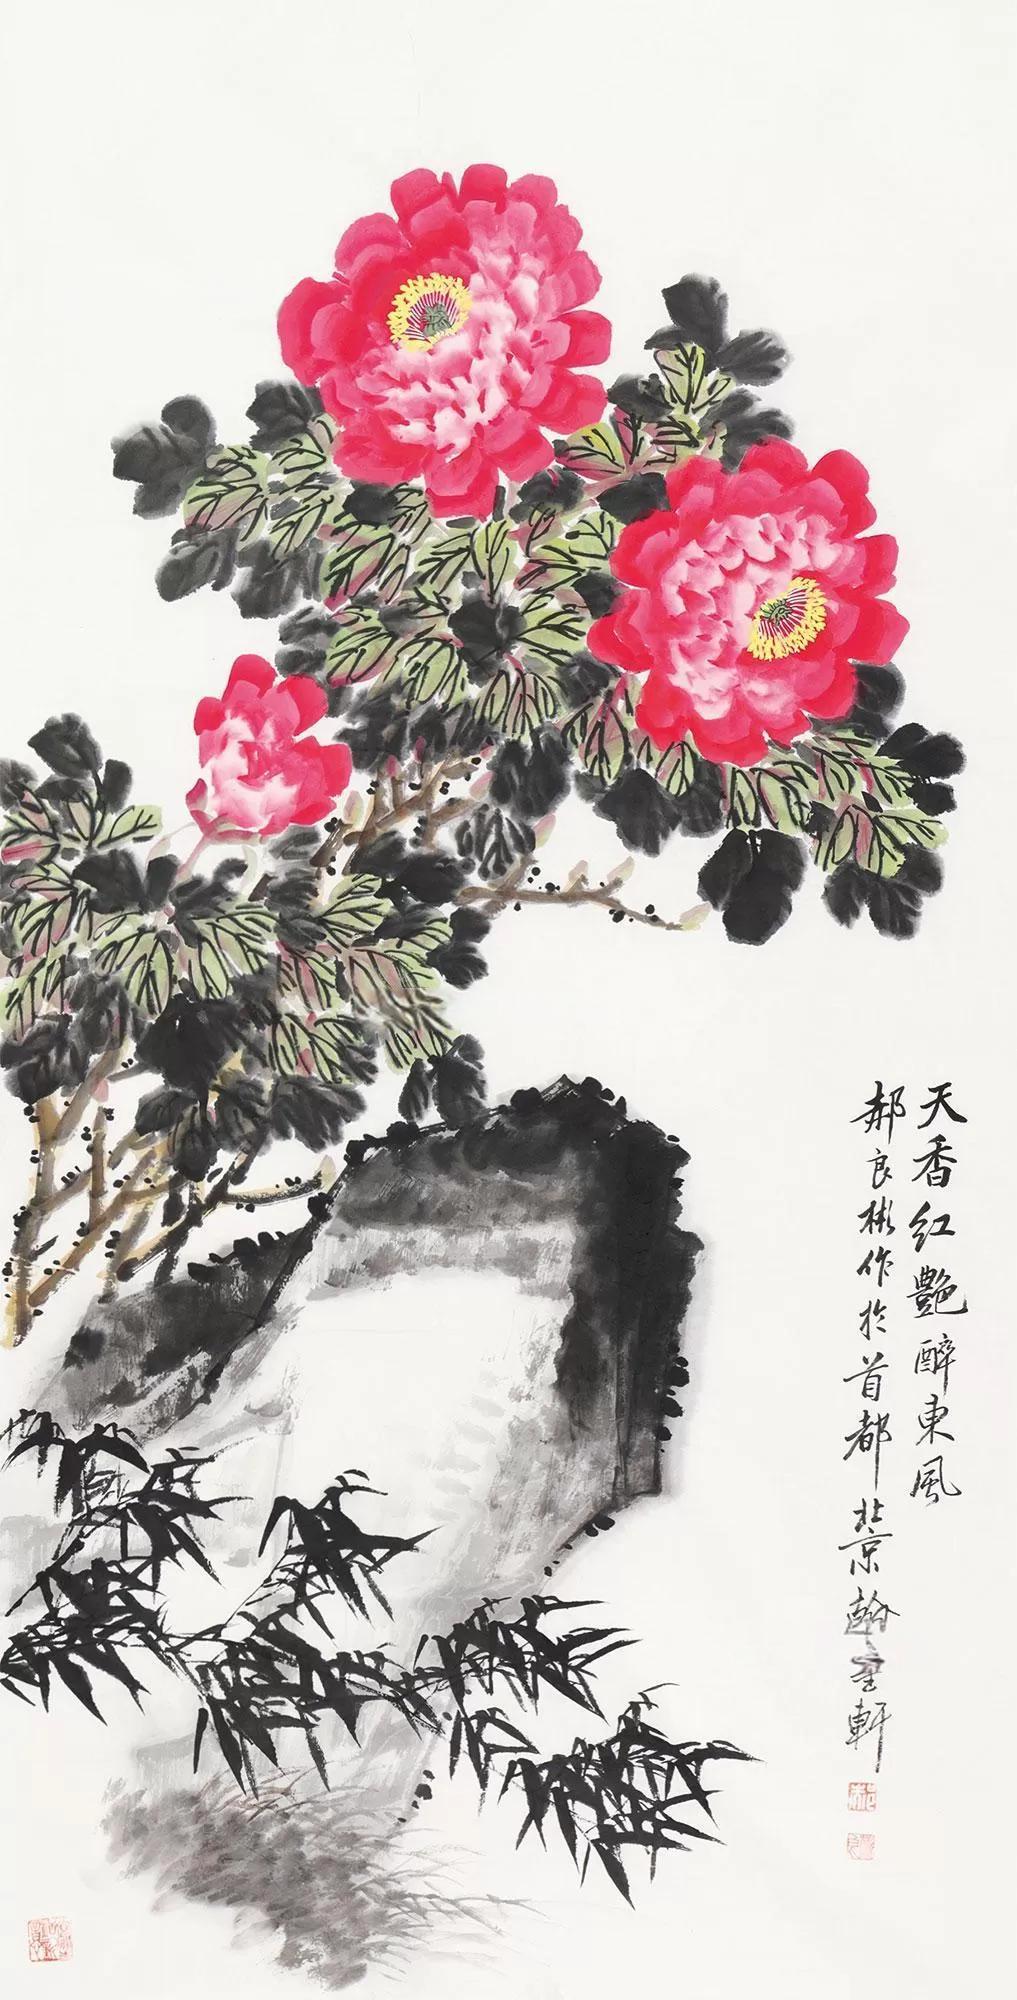 天香红艷醉東風
郝良彬作於首都北京翰墨軒